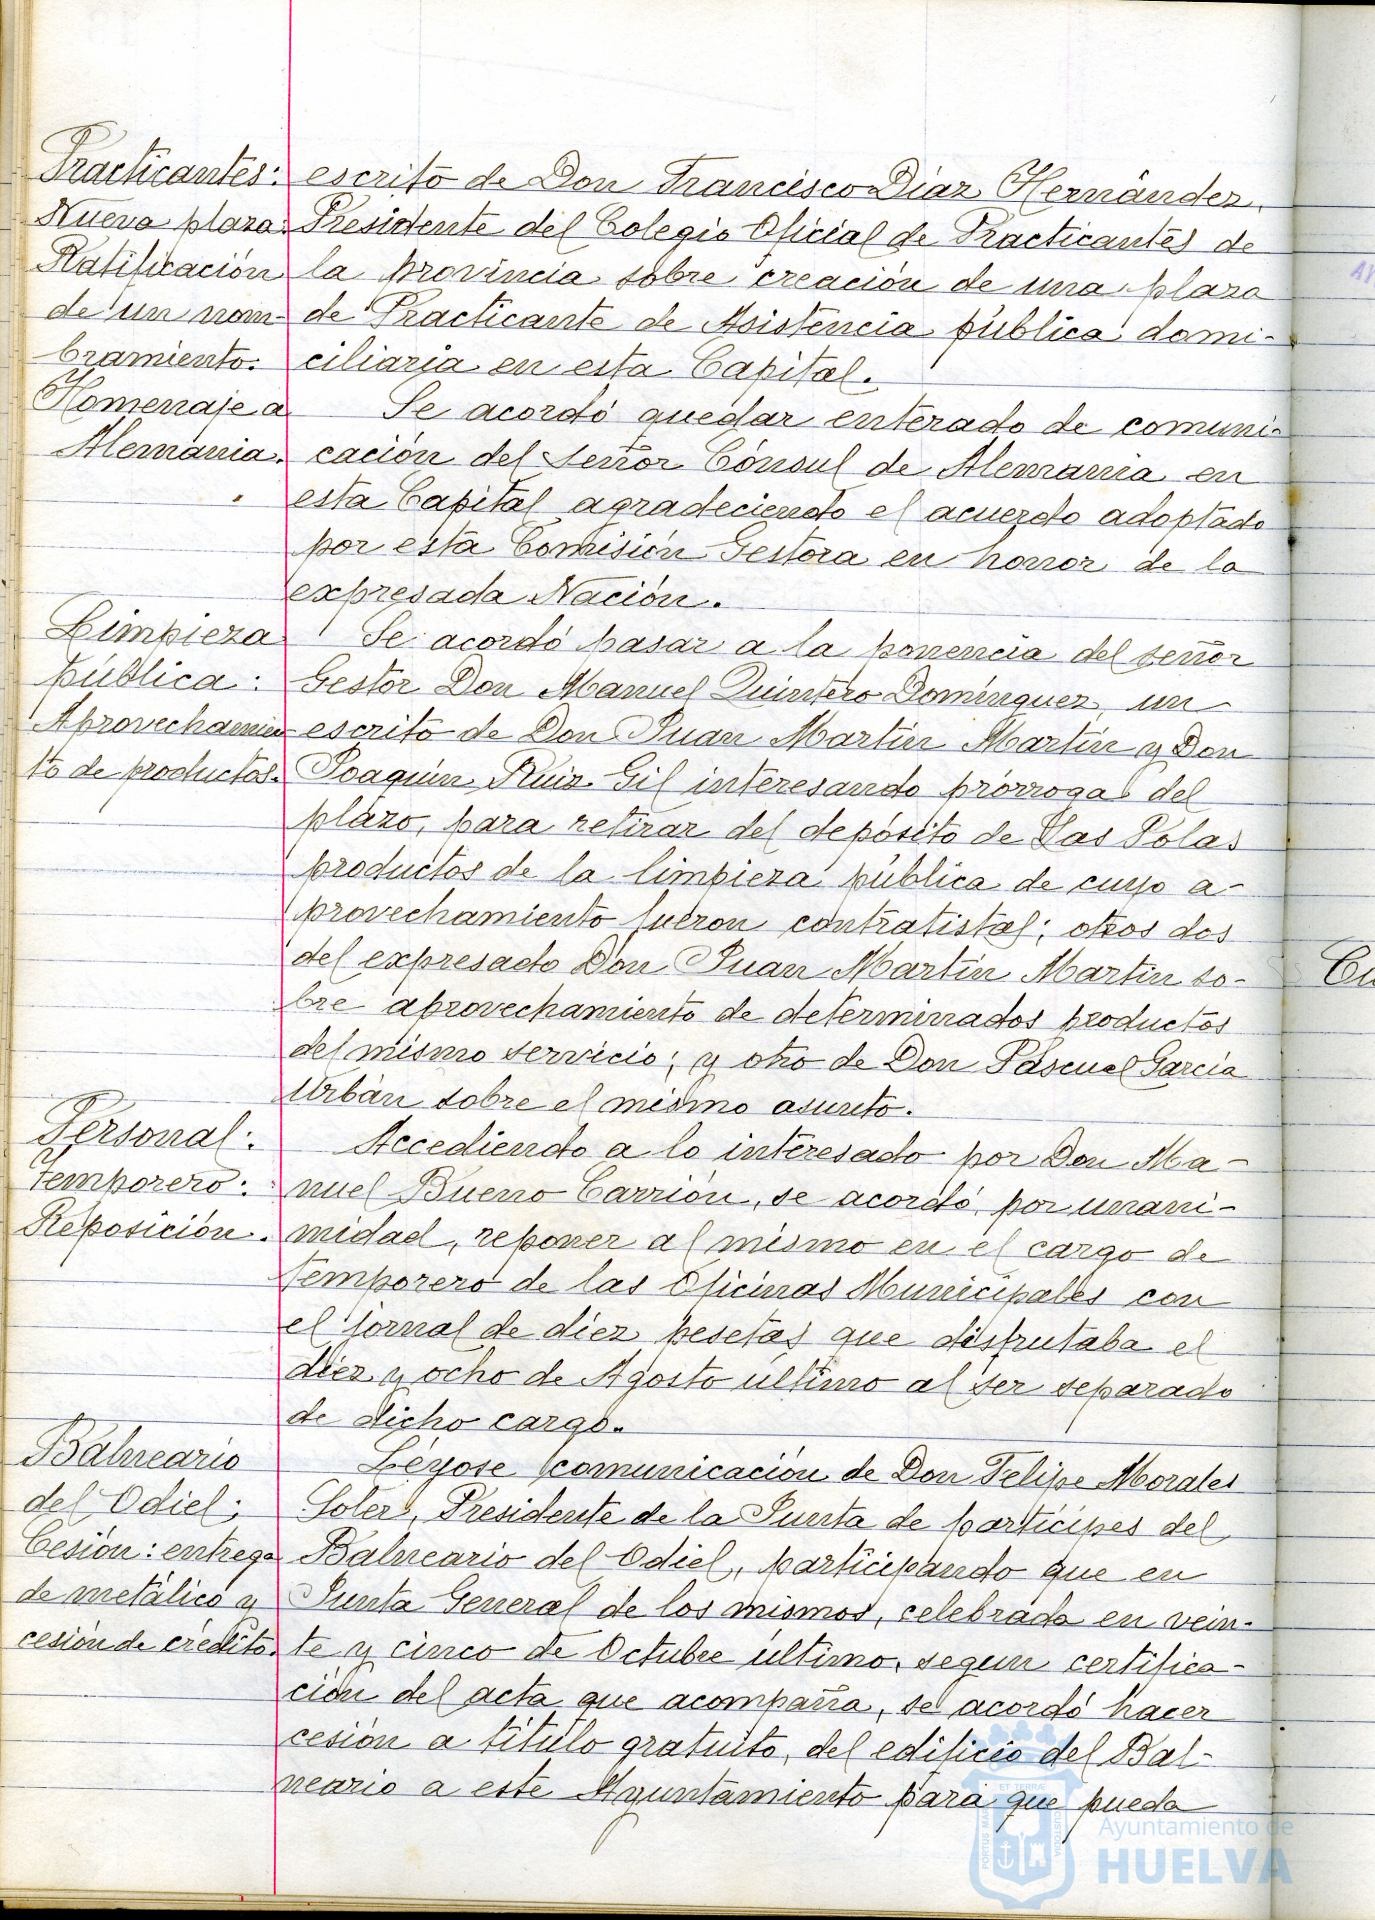 Practicantes:
Nueva plaza.
Ratificación
de un nom-
bramiento.
Homenaje a
Alemania.
escrito de Don Francisco Díaz Hernández,
Presidente del Colegio Oficial de Practicantes de
la provincia sobre creación de una plaza
de Practicante de Asistencia pública domi-
ciliaria en esta Capital.
Se acordó quedar enterado de comuni-
cación del señor Cónsul de Alemania en
esta Capital agradeciendo el acuerdo adoptado
por esta Comisión Gestora en honor de la
expresada Nación.
Limpieza
pública:
Aprovechamien
to de productos.
Se acordó pasar a la ponencia del señor
Gestor Don Manuel Quintero Domínguez, un
escrito de Don Juan Martín Martín y Don
Joaquín Ruiz Gil interesando prórroga del
plazo, para retirar del depósito de Las Polas
productos de la limpieza pública de cuyo a-
provechamiento fueron contratistas; otros dos
del expresado Don Juan Martín Martín so-
bre aprovechamiento de determinados productos
del mismo servicio; y otro de Don Pascual García
Urbán sobre el mismo asunto.
Personal:
Temporero:
Reposición.
Accediendo a lo interesado por Don Ma-
nuel Bueno Carrión, se acordó, por unani-
midad, reponer al mismo en el cargo de
temporero de las Oficinas Municipales con
el jornal de diez pesetas que disfrutaba el
diez y ocho de Agosto último al ser separado
de dicho cargo.
Balneario
del Odiel;
Cesión: entrega
de metálico y
cesión de crédito.
Léyose comunicación de Don Felipe Morales
Soler, Presidente de la Junta de partícipes del
Balneario del Odiel, participando que en
Junta General de los mismos, celebrada en vein-
te y cinco de Octubre último, segun certifica-
ción del acta que acompaña, se acordó hacer
cesión a título gratuito, del edificio del Bal-
neario a este Ayuntamiento para que pueda
Cu
AY
PORTUS MARIS ET TERRAE CUSTODIA
Ayuntamiento de
HUELVA